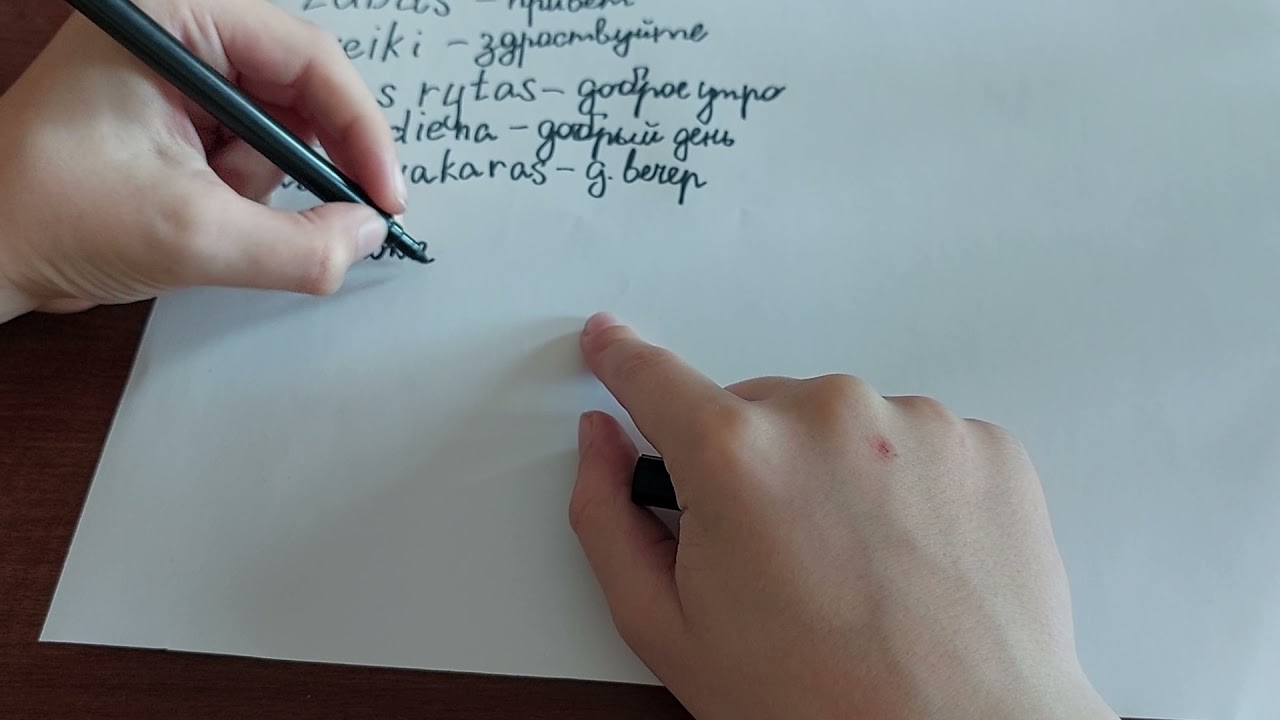 Labas – привет
reiki – здраствуйте
s rytas – доброе утро
diena – добрый день
vakaras – д. вечер